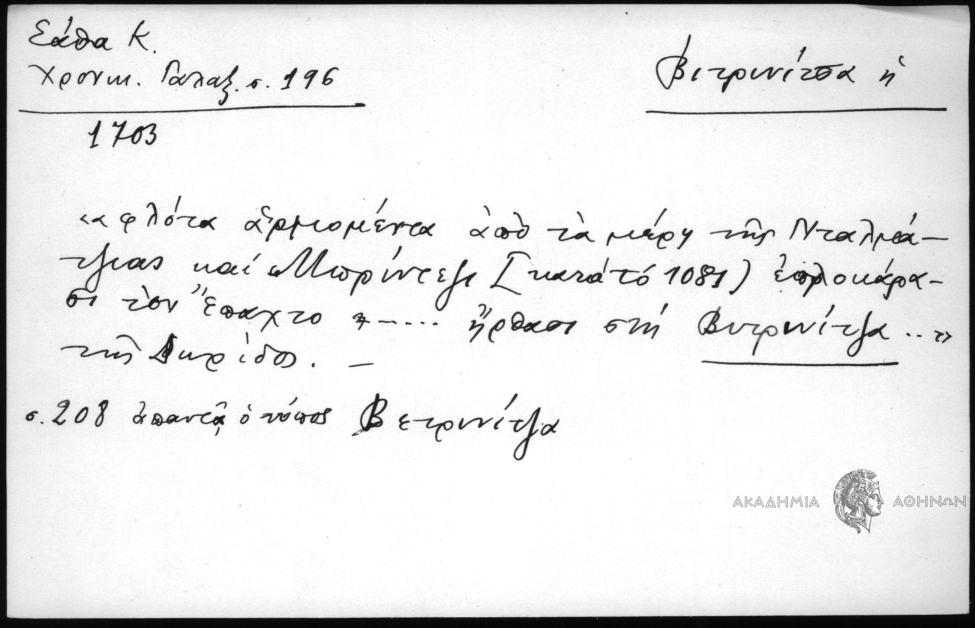 Σάθα Κ.
Χρονικ. Γαλαξ. σ. 196
Βιτρινίτσα ἡ
1703
«α φλότα ἀρμιομένα ἀπὸ τὰ μέρη τῆς Νταλμά-
τζιας καὶ Μπρίντεζι [κατὰ τό 1081) ἐμπλοκάρα-
σι τὸν Ἔπαχτο ..... ἤρθασι στὴ Βιτρινίτζα .. »
τῆς Δωρίδος. —
σ. 208 ἀπαντᾷ ὁ τύπος Βετρινίτζα
ΑΚΑΔΗΜΙΑ ΑΘΗΝΩΝ